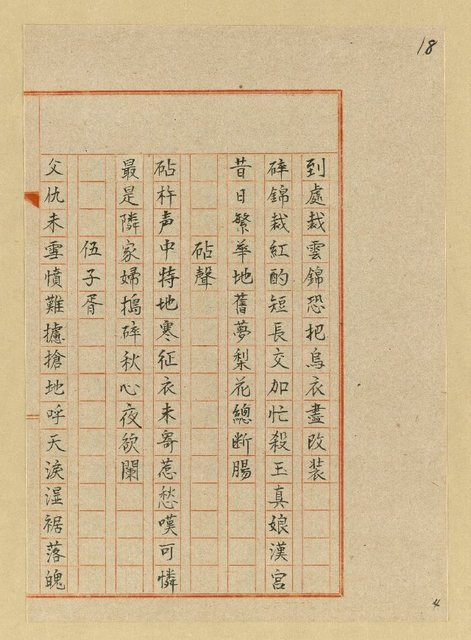 18
到處裁雲錦恐把烏衣盡改装
碎錦裁紅酌短長交加忙殺玉真娘漢宮
昔日繁華地舊夢梨花總断腸
砧聲
砧杵声中特地寒征衣未寄惹愁嘆可憐
最是隣家婦搗碎秋心夜欲闌
伍子胥
父仇未雪憤難攄搶地呼天淚湿裾落魄
4